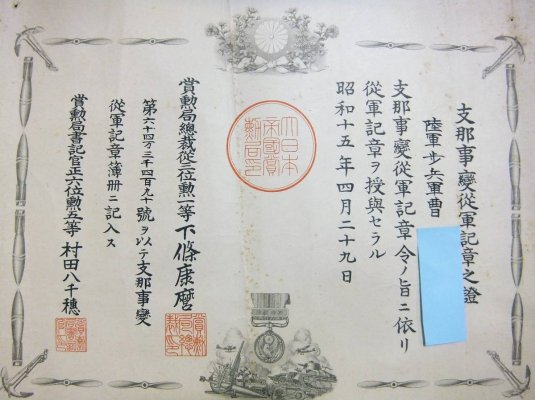 支那事變從軍記章之證
陸軍步兵軍曹
支那事變從軍記章令ノ旨ニ依リ
從軍記章ヲ授與セラル
昭和十五年四月二十九日
大日本
帝國賞
勲局印
賞勲局總裁從三位勲一等下條康麿
第六十四万三千四百九十號ヲ以テ支那事變
從軍記章簿册ニ記入ス
賞勲局書記官正六位勲五等村田八千穗